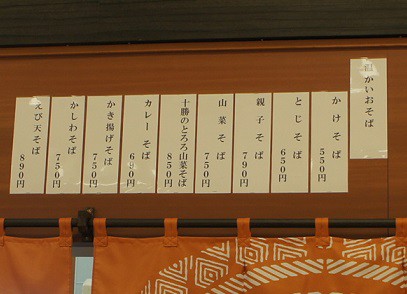 温かいおそば
かけそば
550円
とじそば
650円
親子そば
790円
山菜そば
750円
十勝のとろろ山菜そば
850円
カレーそば
690円
かき揚げそば
750円
かしわそば
750円
えび天そば
890円